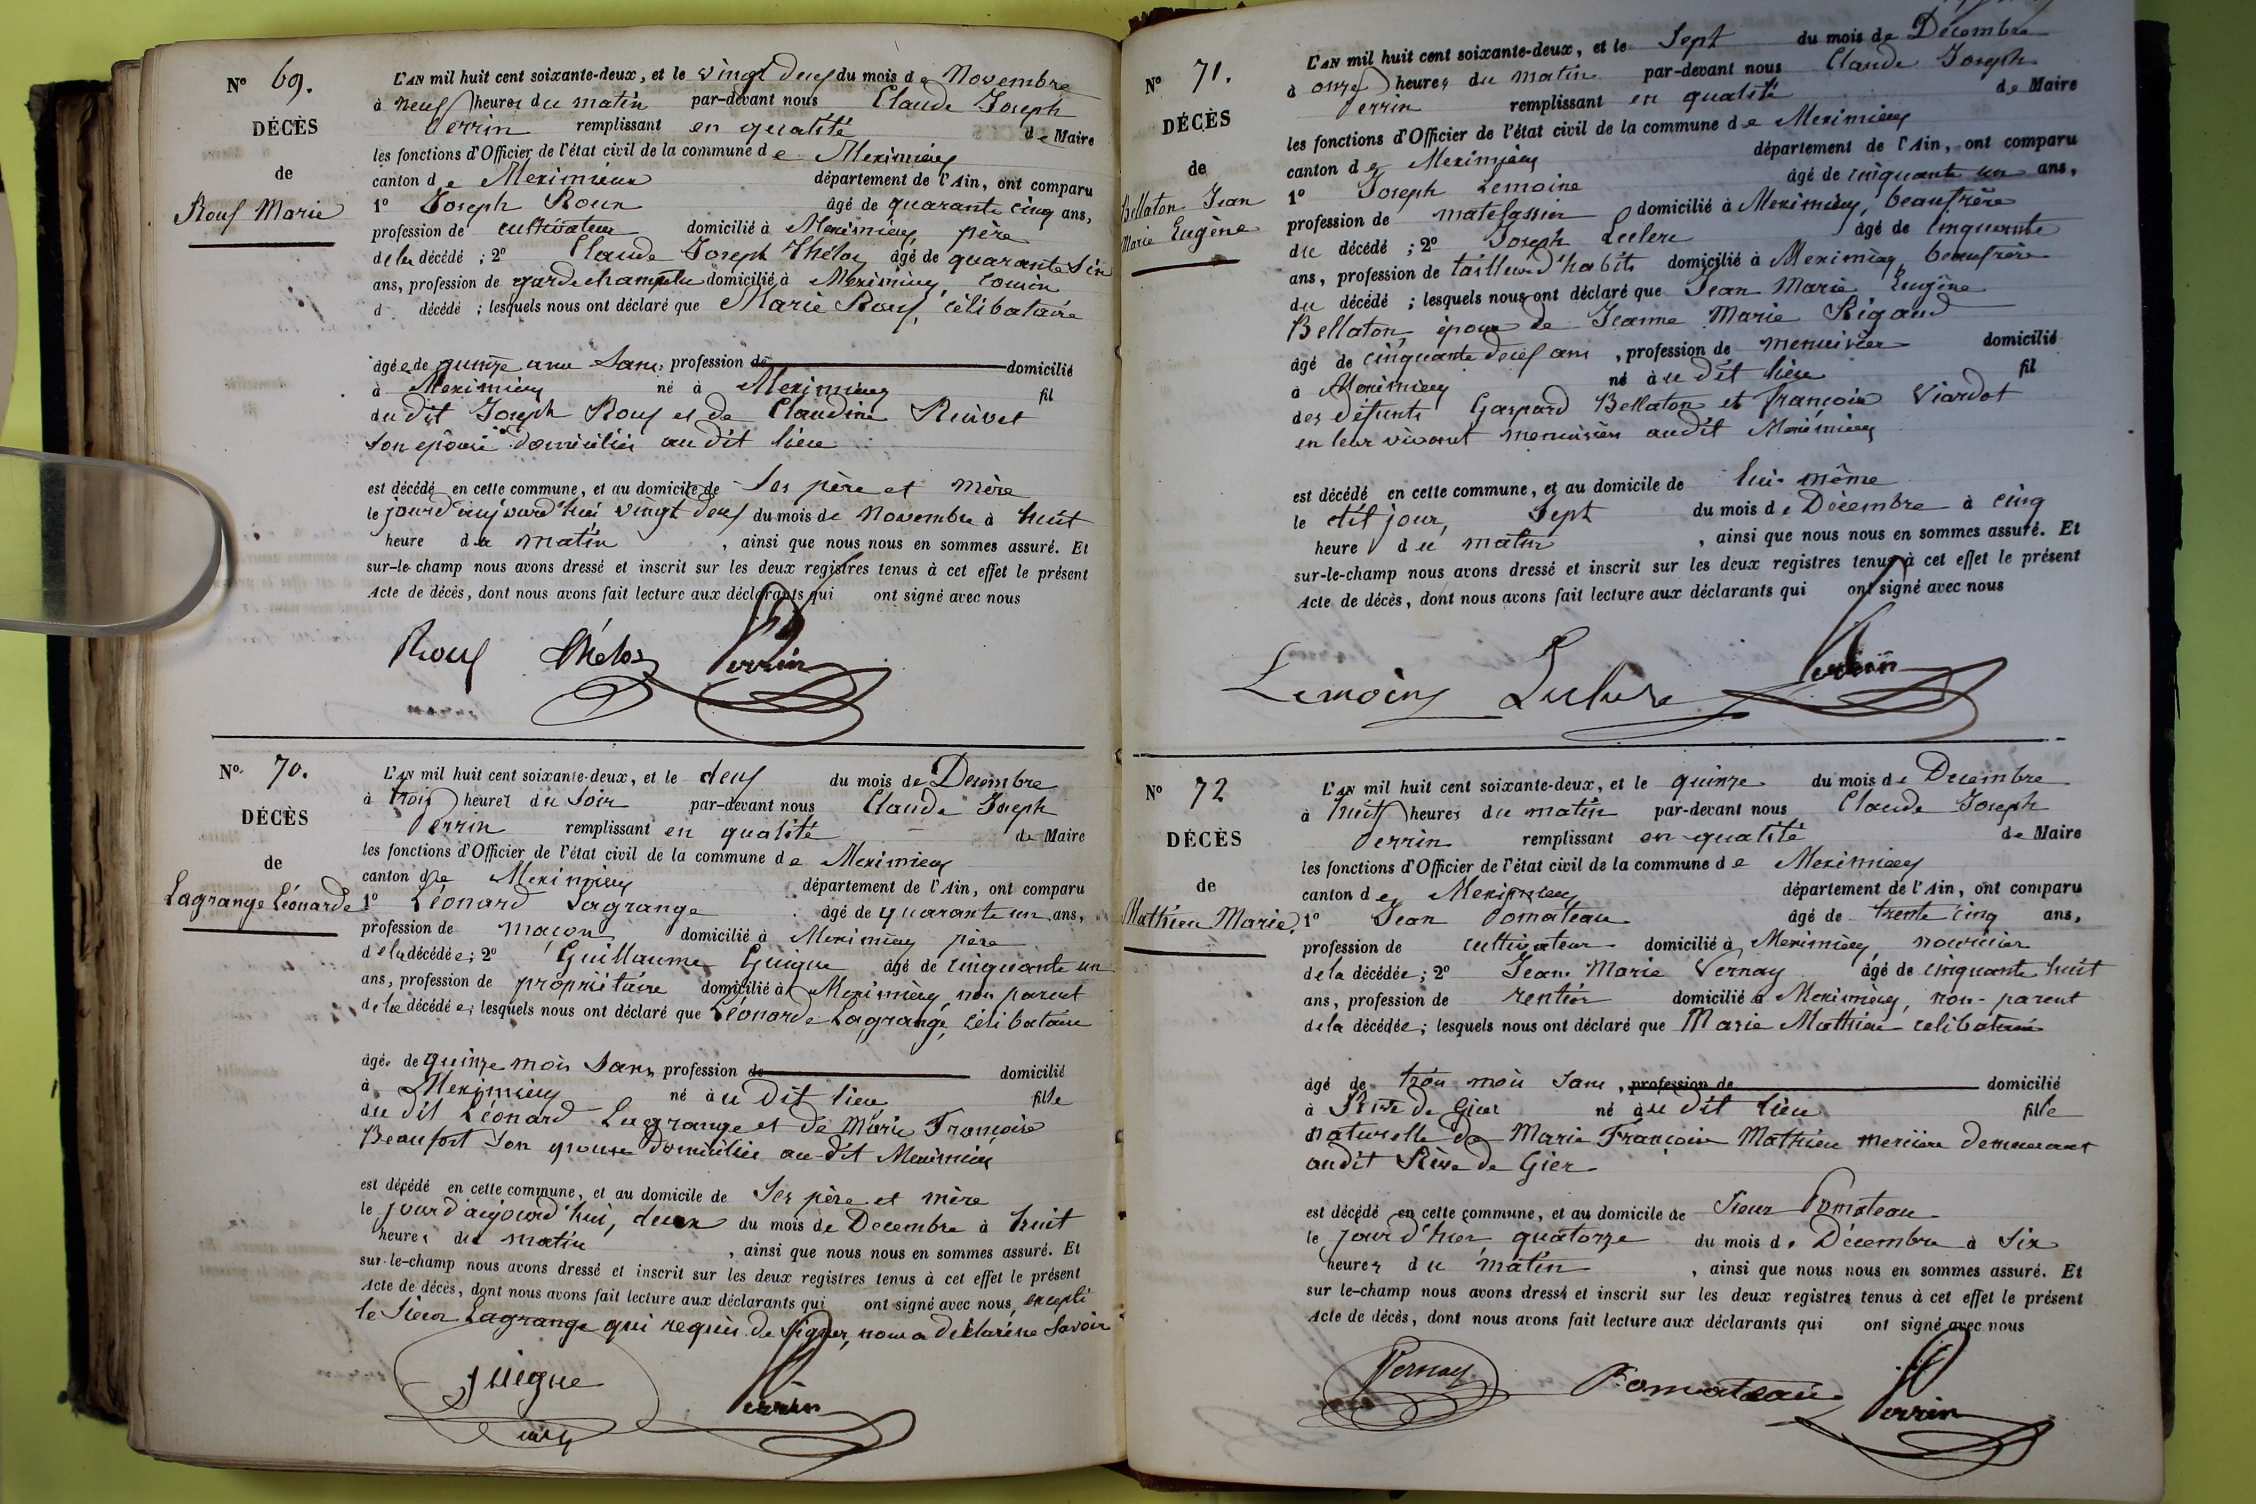 N° 69.
DÉCÈS
de
Roux Marie
L'AN mil huit cent soixante-deux, et le vingt deux du mois de Novembre
à neuf heures du matin par-devant nous Claude Joseph
Perrin remplissant en qualité de Maire
les fonctions d'Officier de l'état civil de la commune de Meximieux
canton de Meximieux département de l'Ain, ont comparu
1° Joseph Roux âgé de quarante cinq ans,
profession de cultivateur domicilié à Meximieux père
de la décédé ; 2° Claude Joseph Thélos âgé de quarante six
ans, profession de garde champêtre domicilié à Meximieux, cousin
d décédé ; lesquels nous ont déclaré que Marie Roux, célibataire
âgée de quinze ans Sans, profession de domicilié
à Meximieux né à Meximieux fil
du dit Joseph Roux et de Claudine Rivet
son épouse domiciliés au dit lieu
est décédé en cette commune, et au domicile de Ses père et mère
le jour d'aujourd'hui vingt deux du mois de Novembre à huit
heure du matin , ainsi que nous nous en sommes assuré. Et
sur-le-champ nous avons dressé et inscrit sur les deux registres tenus à cet effet le présent
Acte de décès, dont nous avons fait lecture aux déclarants qui ont signé avec nous
Roux Thélos Perrin
N° 70.
DÉCÈS
de
Lagrange Léonarde
L'AN mil huit cent soixante-deux, et le deux du mois de Decembre
à trois heures du soir par-devant nous Claude Joseph
Perrin remplissant en qualité de Maire
les fonctions d'Officier de l'état civil de la commune de Meximieux
canton de Meximieux département de l'Ain, ont comparu
1° Léonard Lagrange âgé de quarante un ans,
profession de maçon domicilié à Meximieux père
de la décédée ; 2° Guillaume Guigue âgé de cinquante un
ans, profession de propriétaire domicilié à Meximieux, non parent
de la décédée ; lesquels nous ont déclaré que Léonarde Lagrange, célibataire
âgée de quinze mois Sans profession de domicilié
à Meximieux né au dit lieu fille
du dit Léonard Lagrange et de Marie Françoise
Beaufort son épouse domiciliés au-dit Meximieux
est décédé en cette commune, et au domicile de Ses père et mère
le jour d'aujourd'hui, deux du mois de Decembre à huit
heures du matin , ainsi que nous nous en sommes assuré. Et
sur-le-champ nous avons dressé et inscrit sur les deux registres tenus à cet effet le présent
Acte de décès, dont nous avons fait lecture aux déclarants qui ont signé avec nous, excepté
le Sieur Lagrange qui requis de signer, nous a déclaré ne Savoir
Guigue Perrin
N° 71.
DÉCÈS
de
Bellaton Jean
Marie Eugène
L'AN mil huit cent soixante-deux, et le Sept du mois de Décembre
à onze heures du matin par-devant nous Claude Joseph
Perrin remplissant en qualité de Maire
les fonctions d'Officier de l'état civil de la commune de Meximieux
canton de Meximieux département de l'Ain, ont comparu
1° Joseph Lemoine âgé de cinquante un ans,
profession de matelassier domicilié à Meximieux, beaufrère
du décédé ; 2° Joseph Leclerc âgé de cinquante
ans, profession de tailleur d'habits domicilié à Meximieux, beaufrère
du décédé ; lesquels nous ont déclaré que Jean Marie Eugène
Bellaton, époux de Jeanne Marie Rigaud
âgé de cinquante deux ans , profession de menuisier domicilié
à Meximieux né au dit lieu fil
des défunts Gaspard Bellaton et françoise Viardot
en leur vivant menuisiers audit Meximieux
est décédé en cette commune, et au domicile de lui-même
le dit jour, Sept du mois de Décembre à cinq
heure du matin , ainsi que nous nous en sommes assuré. Et
sur-le-champ nous avons dressé et inscrit sur les deux registres tenus à cet effet le présent
Acte de décès, dont nous avons fait lecture aux déclarants qui ont signé avec nous
Lemoine Leclerc Perrin
N° 72
DÉCÈS
de
Mathieu Marie
L'AN mil huit cent soixante-deux, et le quinze du mois de Decembre
à huit heures du matin par-devant nous Claude Joseph
Perrin remplissant en qualité de Maire
les fonctions d'Officier de l'état civil de la commune de Meximieux
canton de Meximieux département de l'Ain, ont comparu
1° Jean Pomateau âgé de trente cinq ans,
profession de cultivateur domicilié à Meximieux, nourricier
de la décédée ; 2° Jean Marie Vernay âgé de cinquante huit
ans, profession de rentier domicilié à Meximieux, non-parent
de la décédée ; lesquels nous ont déclaré que Marie Mathieu celibataire
âgé de trois mois Sans , profession de domicilié
à Rive de Gier né au dit lieu fille
naturelle de Marie Françoise Mathieu mercière demeurant
audit Rive de Gier
est décédé en cette commune, et au domicile de Sieur Pomateau
le jour d'hier quatorze du mois de Décembre à Six
heures du matin , ainsi que nous nous en sommes assuré. Et
sur le-champ nous avons dressé et inscrit sur les deux registres tenus à cet effet le présent
Acte de décès, dont nous avons fait lecture aux déclarants qui ont signé avec nous
Vernay Pomateau Perrin